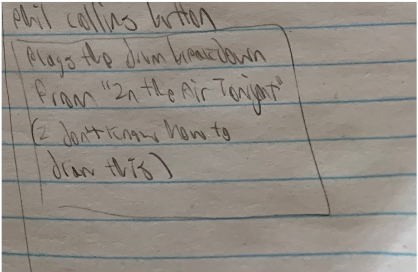 phil collins button
plays the drum breakdown
from "In the Air Tonight"
(I don't know how to
draw this)